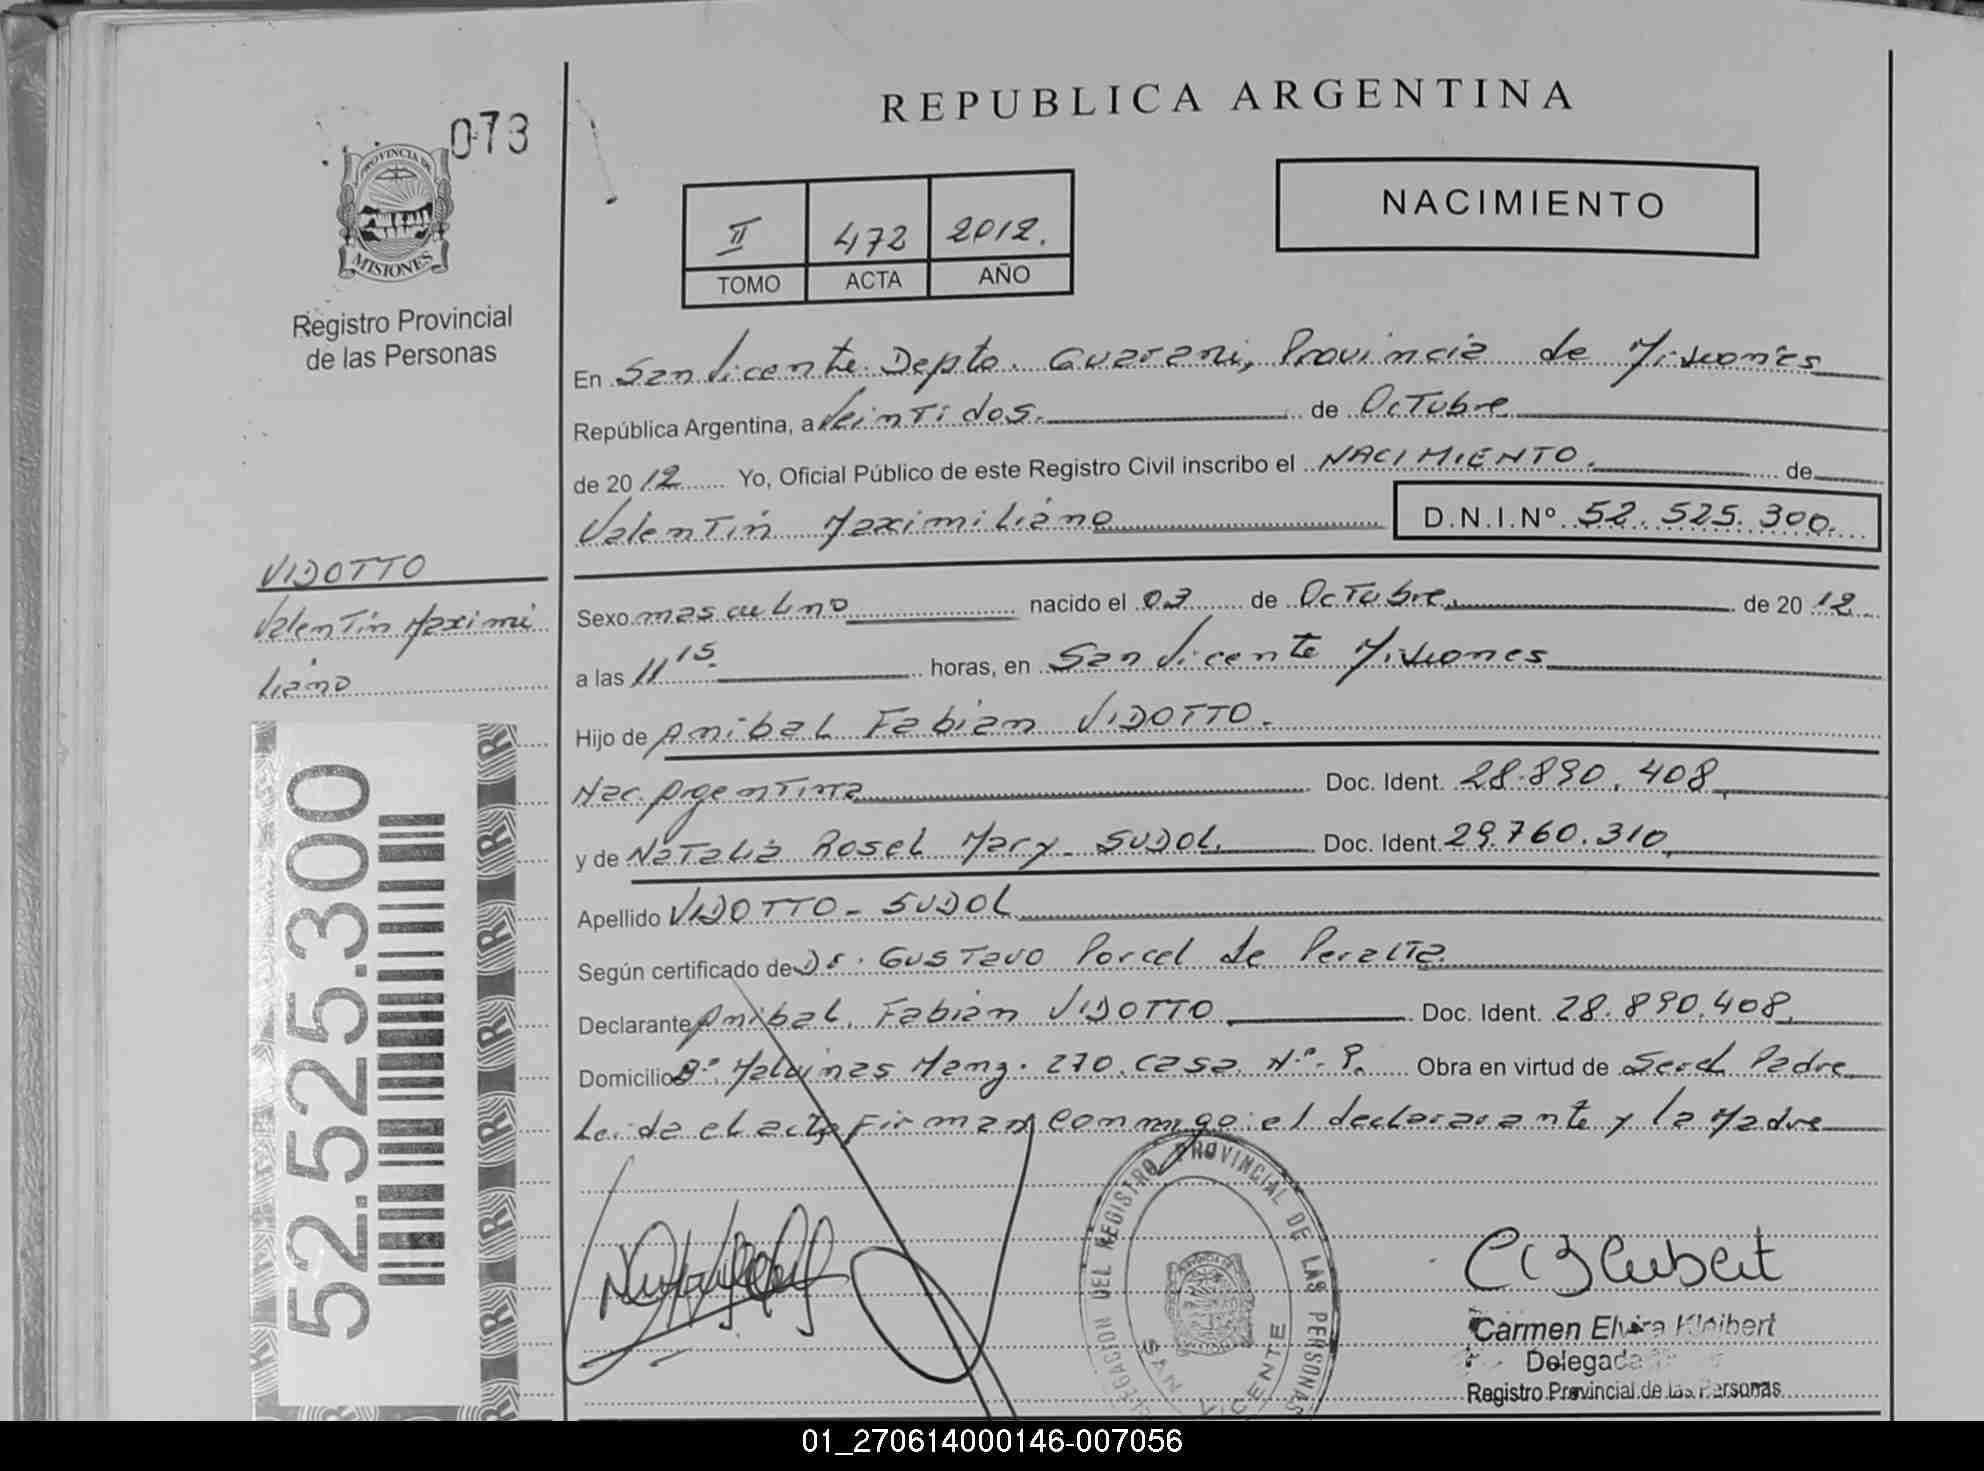 073
PROVINCIA DE
MISIONES
Registro Provincial
de las Personas
REPUBLICA ARGENTINA
NACIMIENTO
II 472 2012.
TOMO ACTA AÑO
En San Vicente Depto. Guarani, Provincia de Misiones
República Argentina, a Veintidos. de Octubre
de 2012 Yo, Oficial Público de este Registro Civil inscribo el NACIMIENTO. de
Valentin Maximiliano D.N.I.Nº 52.525.300.
VIDOTTO
Valentin Maximi
liano
52.525.300
Sexo masculino nacido el 03 de Octubre. de 2012
a las 11 15. horas, en San Vicente Misiones
Hijo de Anibal Fabian VIDOTTO.
Nac. Argentina Doc. Ident. 28.890.408
y de Natalia Rosel Mary SUDOL. Doc. Ident 29.760.310
Apellido VIDOTTO - SUDOL
Según certificado de Dr. Gustavo Porcel de Peralta
Declarante Anibal Fabian VIDOTTO Doc. Ident. 28.890.408.
Domicilio Bº. Malvinas Manz. 270. Casa Nº. 9. Obra en virtud de Ser el Padre
Leida el acta firman conmigo: el declararante y la Madre
DELEGACION DEL REGISTRO PROVINCIAL DE LAS PERSONAS
SAN VICENTE
Carmen Elvira Kleibert
Delegada
Registro Provincial de las Personas
01_270614000146-007056